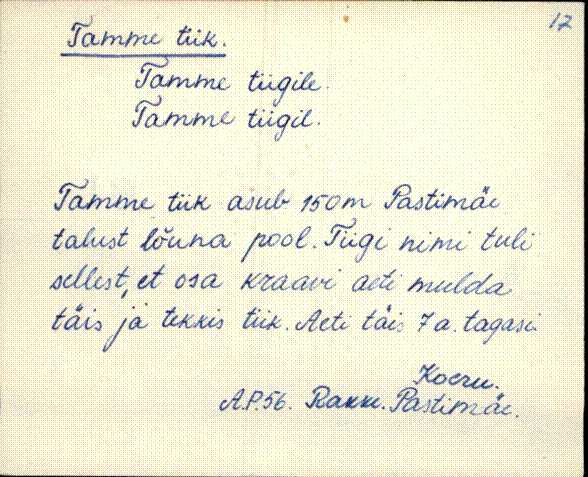 17
Tamme tiik.
Tamme tiigile.
Tamme tiigil.
Tamme tiik asub 150m Pastimäe
talust lõuna pool. Tiigi nimi tuli
sellest, et osa kraavi aeti mulda
täis ja tekkis tiik. Aeti täis 7 a. tagasi.
Koeru.
A.P.56. Rakke. Pastimäe.